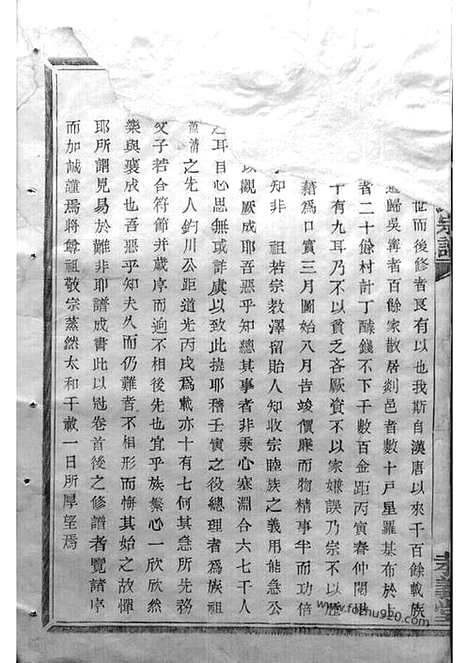 世而後修者良有以也我斯自漢唐以來千百餘載族
歸吳寧者百餘家散居剡邑者數十戶星羅基布於
省二十餘村計丁醵錢不下千數百金距丙寅春仲閱
十有九耳乃不以貧之吝厥資不以家嫌誤乃宗不以歷
藉爲口實三月圖始八月告竣價廉而物精事半而功倍
知非 祖若宗敎澤留貽人知收宗睦族之義用能急公
以觀厥成耶吾惡乎知總其事者非秉心塞淵合六七千人
之耳目心思無或詐虞以致此撓耶稽壬寅之役總理者爲族
清之先人鈞川公距道光丙戌爲載亦十有七何其急所先務
父子若合符節并歲序而適不相後先也宜乎族衆心一欣欣然
樂與襄成也吾惡乎知夫久而仍難者不相形而悔其始之故憚
耶所謂見易於難非耶譜成書此以冠卷首後之修譜者覽諸序
而加誠謹焉將尊祖敬宗蒸然太和千載一日所厚望焉
宗譜
www.fozhu920.com